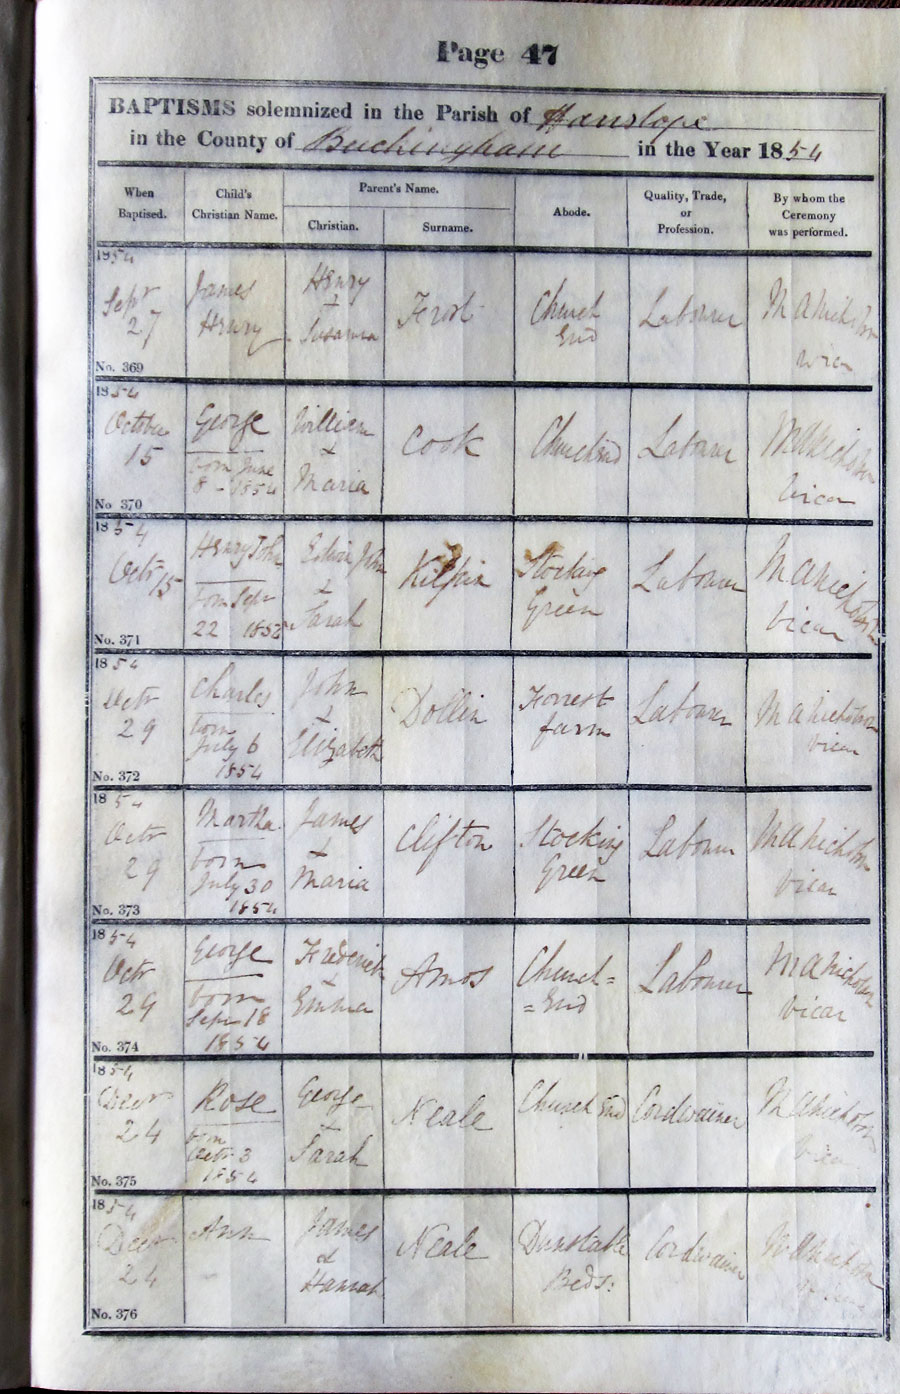 Page 47
BAPTISMS solemnized in the Parish of Hanslope
in the County of Buckingham in the Year 1854
When Baptised.
Child's Christian Name.
Parent's Name.
Christian.
Surname.
Abode.
Quality, Trade, or Profession.
By whom the Ceremony was performed.
1854
Sepr 27
No. 369
James Henry
Henry + Susanna
Frost
Church End
Labourer
M A Nicholson Vicar
1854
October 15
No. 370
George
born June 8 - 1854
William & Maria
Cook
Church End
Labourer
M A Nicholson Vicar
1854
Octr 15
No. 371
Henry John
born Sepr 22
Edwin John & Sarah
Kilpin
Stocking Green
Labourer
M A Nicholson Vicar
1854
Octr 29
No. 372
Charles
born July 6 1854
John & Elizabeth
Dollin
Forrest farm
Labourer
M A Nicholson Vicar
1854
Octr 29
No. 373
Martha
born July 30 1854
James + Maria
Clifton
Stocking Green
Labourer
M A Nicholson Vicar
1854
Octr 29
No. 374
George
born Sepr 18 1854
Frederick & Emma
Amos
Church = = End
Labourer
M A Nicholson Vicar
1854
Decr 24
No. 375
Rose
born Octr 3 1854
George + Sarah
Neale
Church End
Cordwainer
M A Nicholson Vicar
1854
Decr 24
No. 376
Ann
James & Hannah
Neale
Dunstable Beds:
Cordwainer
M A Nicholson